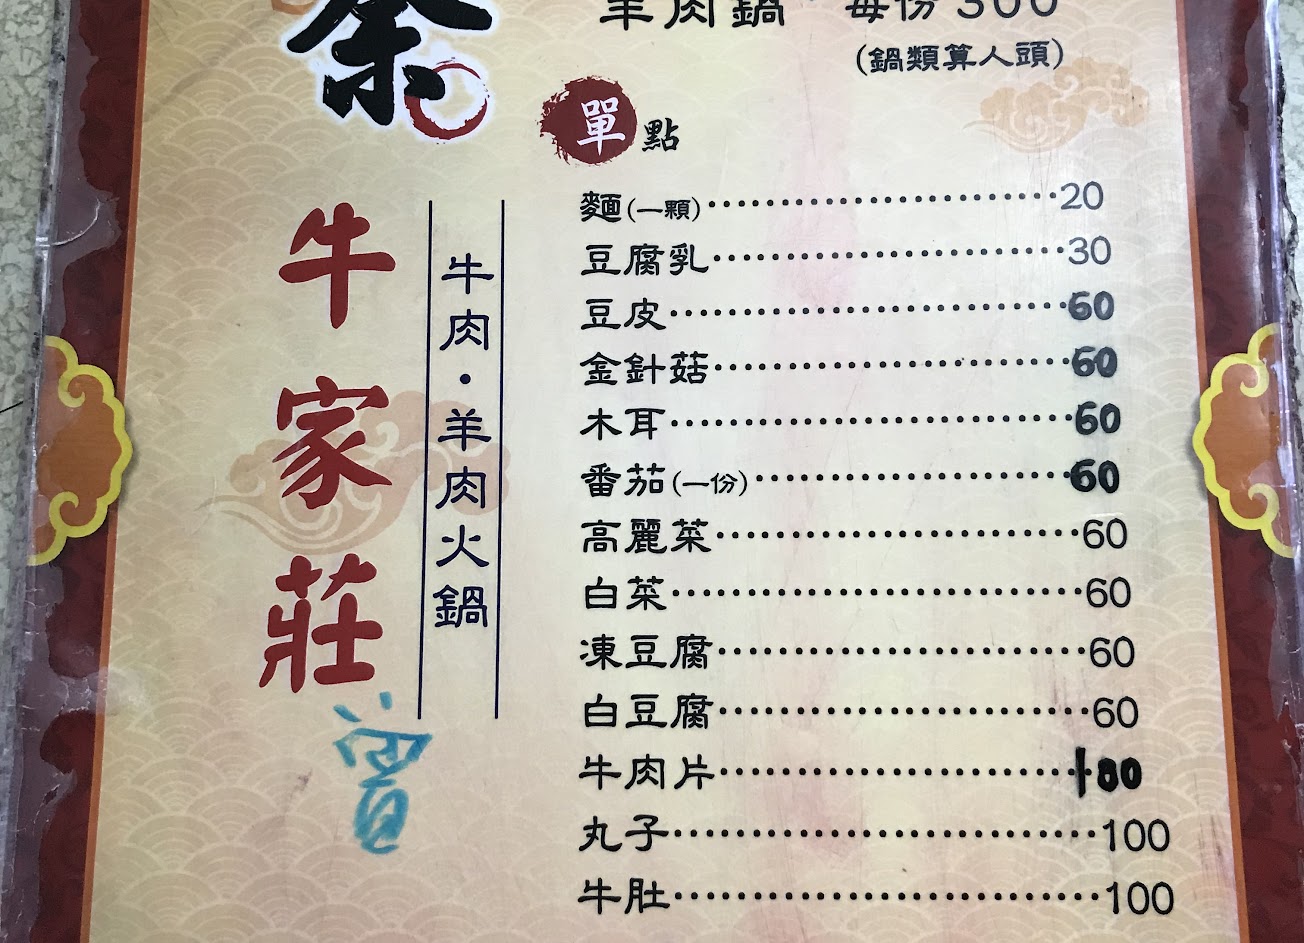 羊肉鍋·每份300
(鍋類算人頭)
單點
麵(一顆)························20
豆腐乳························30
豆皮····························60
金針菇························60
木耳····························60
番茄(一份)····················60
高麗菜························60
白菜····························60
凍豆腐························60
白豆腐························60
牛肉片························180
丸子····························100
牛肚····························100
牛肉·羊肉火鍋
牛家莊